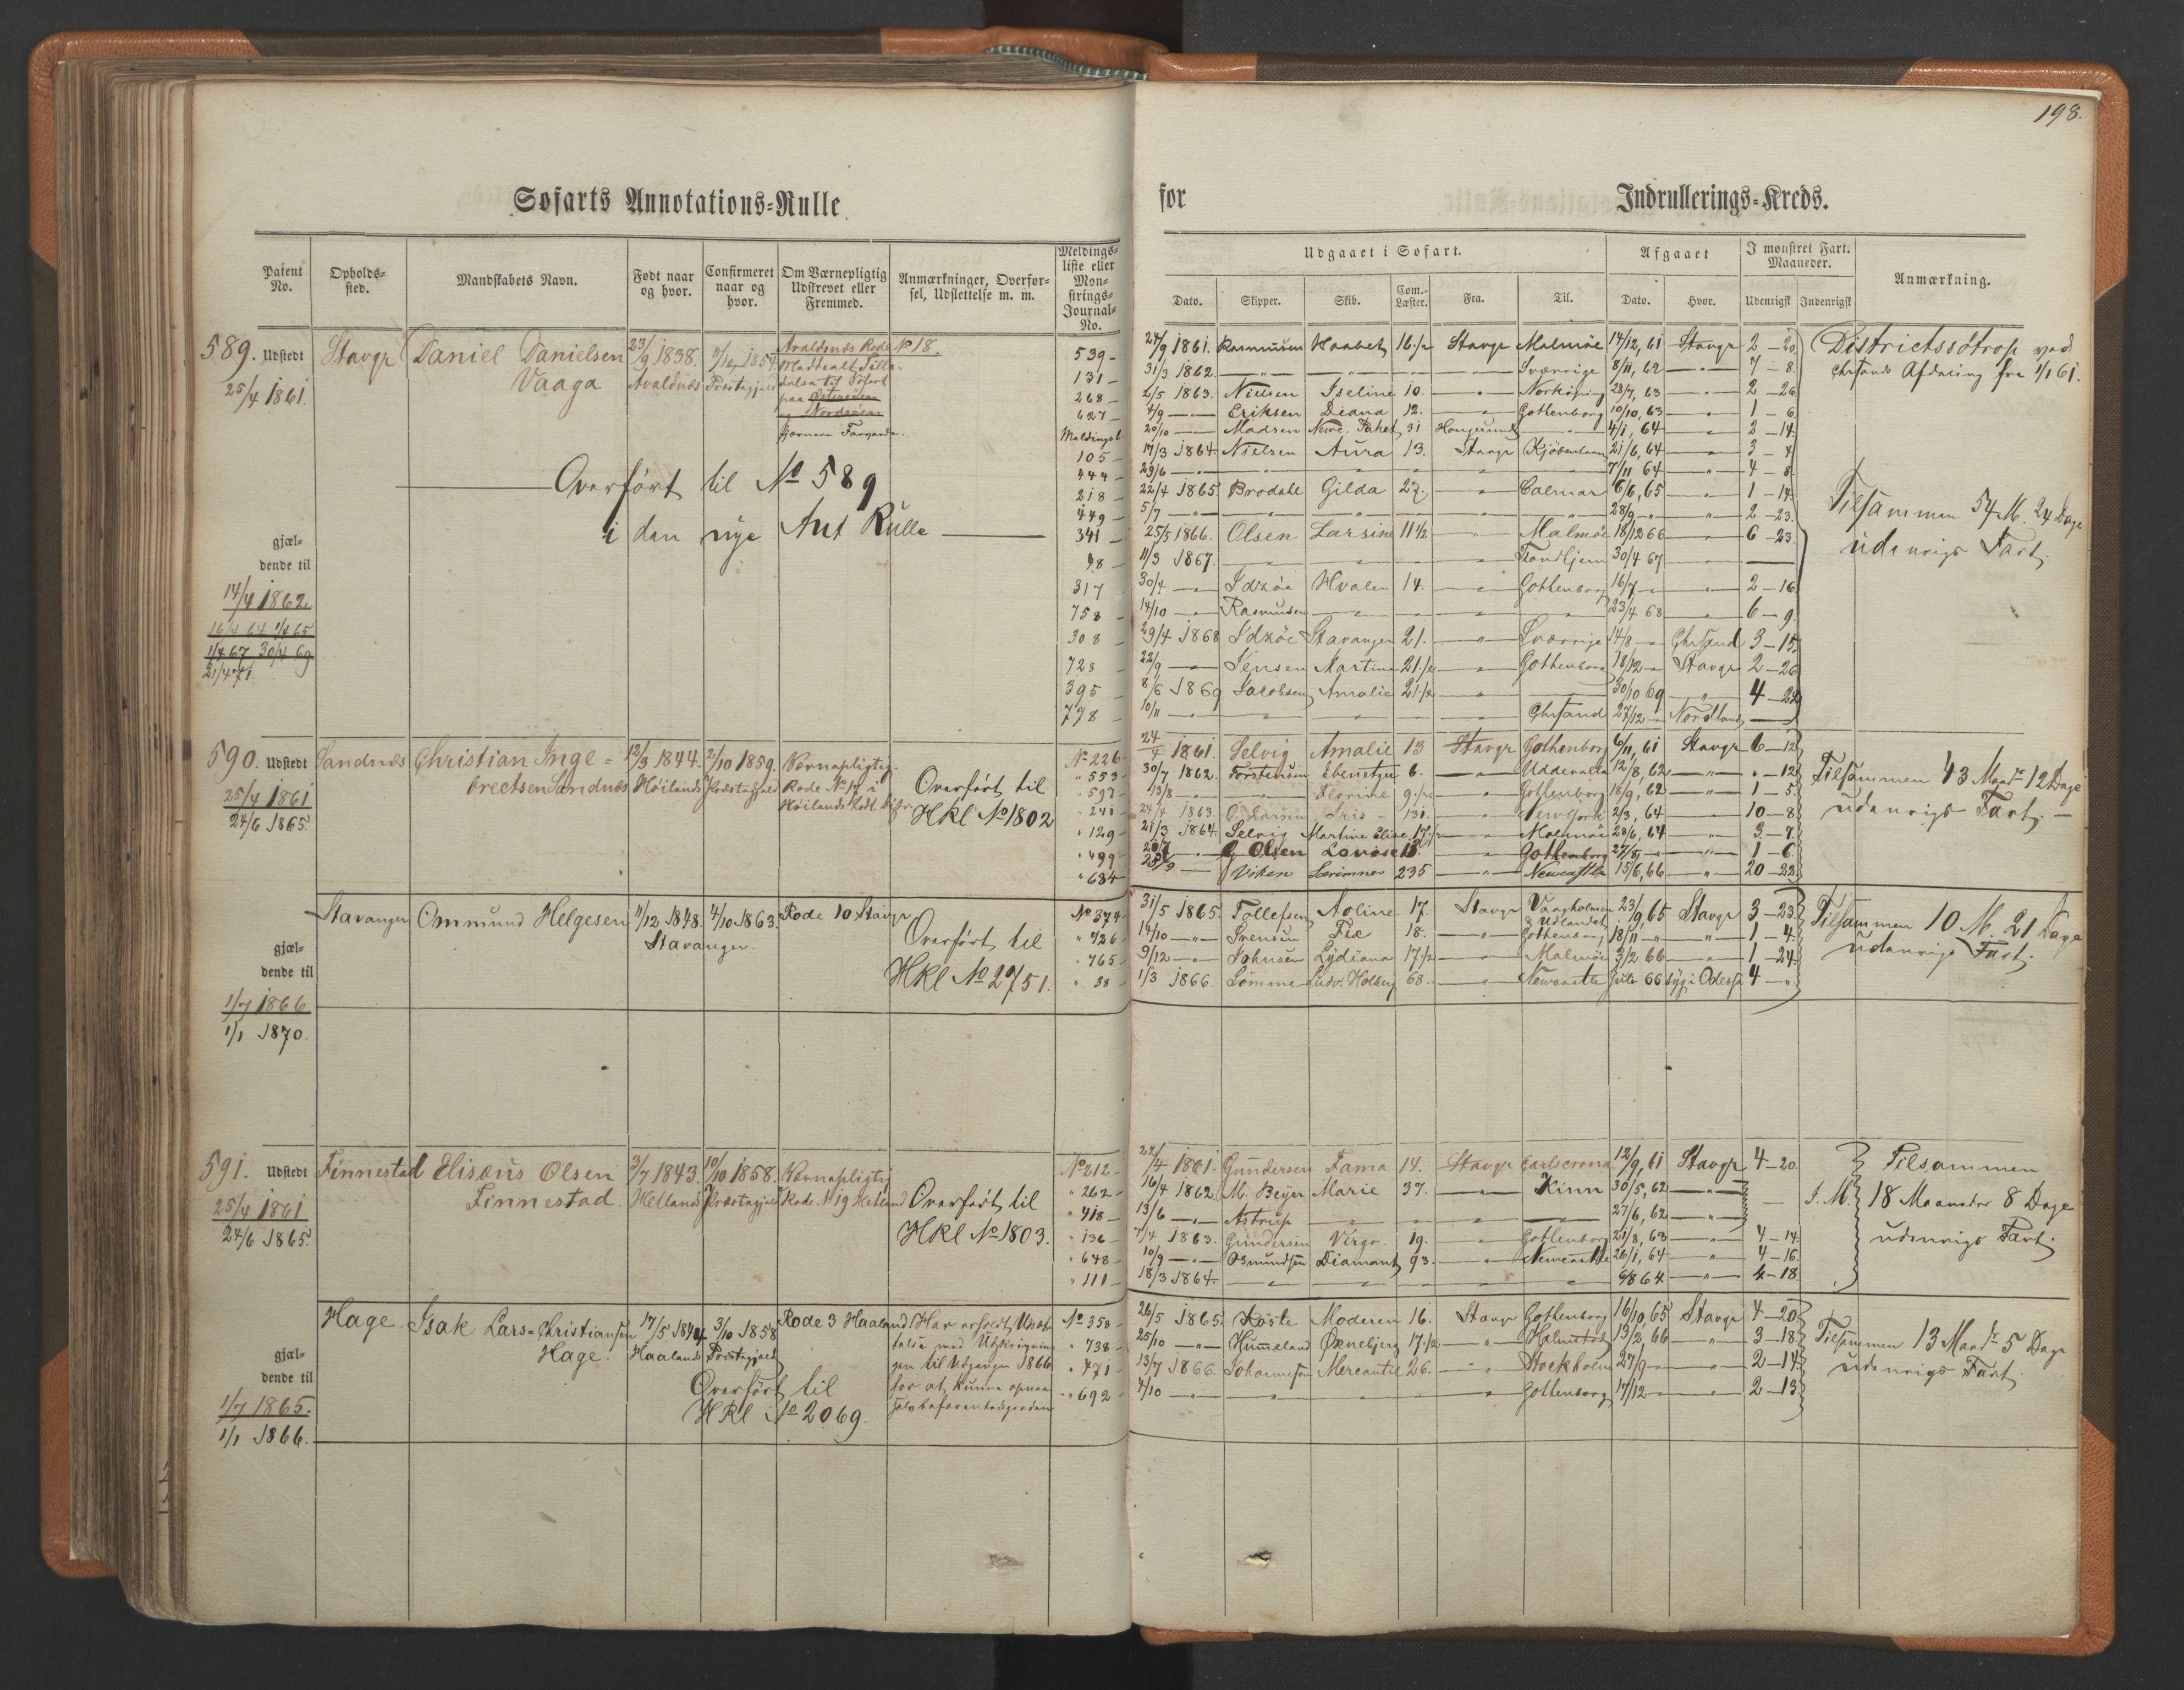 198.
Søfarts Annotations-Rulle
for Indrullerings-Kreds.
Patent No. Opholds-sted. Mandskabets Navn. Født naar og hvor. Confirmeret naar og hvor. Om Værnepligtig Udskrevet eller Fremmed. Anmærkninger, Overfør-sel, Udslettelse m. m. Meldings-liste eller Møn-strings-Journal-No.
Udgaaet i Søfart. Afgaaet I mønstret Fart. Maaneder. Anmærkning.
Dato. Skipper. Skib. Com.-Læster. Fra. Til. Dato. Hvor. Udenrigsk Indenrigsk
589. Udstedt Stavgr Daniel Danielsen 23/9 1838. 1854. Avaldsnæs Rode No 18.
25/4 1861. Vaaga Avaldsnæs Præstegjæld
Overført til No 589
i den nye Ant Rulle
gjæl-
dende til
14/4 1862.
16/4 64 1/4 65
1/4 67 30/4 69
21/4 71.
539 24/9 1861. Rasmussen Haabet 16 1/2 Stavgr Malmöe 14/12, 61 Stavgr 2 - 20.
131 31/3 1862. Sværrige 8/11, 62 7 - 8.
268 2/5 1863. Nielsen Iseline 10. Norköping 28/7, 63 2 - 26
627 4/9 Eriksen Diana 12. Gothenborg 10/10, 63 1 - 6.
20/10 Madsen 31 4/1, 64 2 - 14.
105 17/3 1864. Nielsen Aura 13. Stavgr Kjöbenhavn 21/6, 64 3 - 4
444 29/6 7/11 64 4 - 8.
218 22/4 1865. Brodahl Gilda 27. Calmar 6/6, 65 1 - 14.
449 5/7 28/9 2 - 23.
341 25/5 1866. Olsen Larsine 11 1/2 Malmöe 18/12 66 6 - 23.
98 11/3 1867. Trondhjem 30/4 67
317 30/4 Idsøe Hvalen 14. Gothenborg 16/7 2 - 16
758 14/10 Rasmussen 23/4 68 6 - 9.
308 29/4 1868 Idsöe Stavanger 21. Sværrige 14/8 Chrsand 3 - 15.
728 22/9 Jensen Martine 21 1/2 Gothenborg 18/12 Stavgr 2 - 26
395 8/6 1869 Jacobsen Amalie 21 1/2 30/10 69 4 - 22
778 10/11 Chrsand 27/12
Districtssötrop ved
Chrsands Afdeling fra 1/1 61.
Tilsammen 54 M. 24 Dage
udenrigs Fart.
590. Udstedt Sandnæs Christian Inge= 12/3 1844. 2/10 1859. Værnepligtig.
25/4 1861 brectsen Sandnæs Höilands Præstegjæld Rode No 14 i
24/6 1865. Höilands
Overført til
HKl No 1802
No 226 24/4 1861. Selvig Amalie 13 Stavgr Gothenborg 6/11, 61 Stavgr 6 - 12
" 553 30/7 1862. Torstensen Ebenetzer 6. Uddevalla 12/8, 62 " - 12
" 597 13/8 Florine 9 1/2 Gothenborg 18/9, 62 1 - 5.
" 241 24/4 1863. O. Larsen Iris 131. 2/3, 64 10 - 8
" 129 21/3 1864. Selvig Martine Elise 17 1/2 Malmöe 28/6, 64 3 - 7.
" 499 Olsen Lovise 13 Gothenborg 27/8 1 - 6.
" 684 Viken 235 Newcastle 15/6, 66 20 - 22
Tilsammen 43 Maadr 12 Dage
udenrigs Fart.
Stavanger Ommund Helgesen 11/12 1848. 4/10 1863. Rode 10 Stavgr
Stavanger.
Overført til
HKl No 2751.
gjæl-
dende til
1/7 1866
1/1 1870.
No 374 31/5 1865. Tollefsen Aoline 17. Stavgr Vargholmen 23/9, 65 Stavgr 3 - 23.
" 726 14/10 Svensen 18. Gothenborg 18/11 1 - 4.
" 765 9/12 Johnsen Lydiana 17 1/2 Malmöe 3/2 66 1 - 24.
" 38 1/3 1866. Lømme Ludv. Holberg 68. Newcastle Juli 66 syg i Odessa 4 - "
Tilsammen 10 M. 21 Dage
udenrigs Fart.
591. Udstedt Finnestad Elisæus Olsen 3/7 1843. 10/10 1858. Værnepligtig
25/4 1861 Finnestad. Hetlands Præstegjæld Rode No 19 Hetland
24/6 1865.
Overført til
HKl No 1803.
No 212 24/4 1861. Gundersen Fama 14. Stavgr Carlscrona 12/9, 61 Stavgr 4 - 20.
" 262 16/4 1862. M. Beyer Marie 37. Kinn 30/5, 62
" 418 13/6 Astrup 27/6, 62 I. M.
" 136 7/4 1863. Gundersen Virgo. 19. Gothenborg 21/8, 63 4 - 14.
" 648 10/9 Osmundsen Diamant 93. Newcastle 26/1, 64 4 - 16
" 111 18/3 1864. 6/8 64 4 - 18.
Tilsammen
18 Maaneder 8 Dage
udenrigs Fart.
Hage. Isak Lars=Christiansen 17/5 1844 3/10 1858 Rode 3 Haaland
Hage. Haalands Præstegjæld
Har erholdt Udsæt-
telse med Udskrivnin-
gen til Udgangen 1866
for at kunne opnaa
Overført til
HKl No 2069.
gjæl-
dende til
1/7 1865.
1/1 1866.
No 358 26/5 1865. Köste Moderen 16. Stavgr Gothenborg 16/10, 65 Stavgr 4 - 20.
" 738 25/10 Hummeland Ørnebjerg 17 1/2 Halmstad 13/2, 66 3 - 18
" 471 13/7 1866. Johannesen Mercantil 26. Stockholm 27/9 2 - 14.
" 692 4/10 Gothenborg 17/12 2 - 13
Tilsammen 13 Maadr 5 Dage
udenrigs Fart.